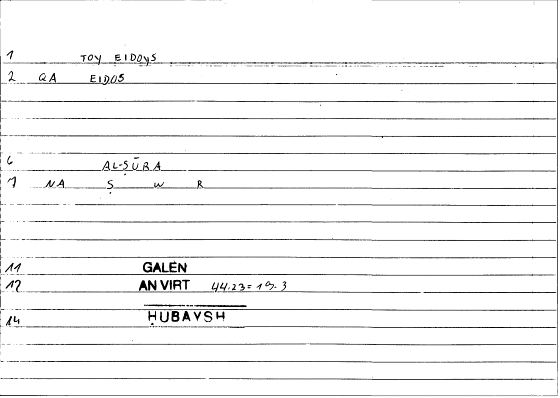 1 TOY EIDOYS
2 QA EIDOS
6 AL-ṢŪRA
7 NA Ṣ W R
11 GALEN
12 AN VIRT 44.23 = 19.3
14 ḤUBAYSH